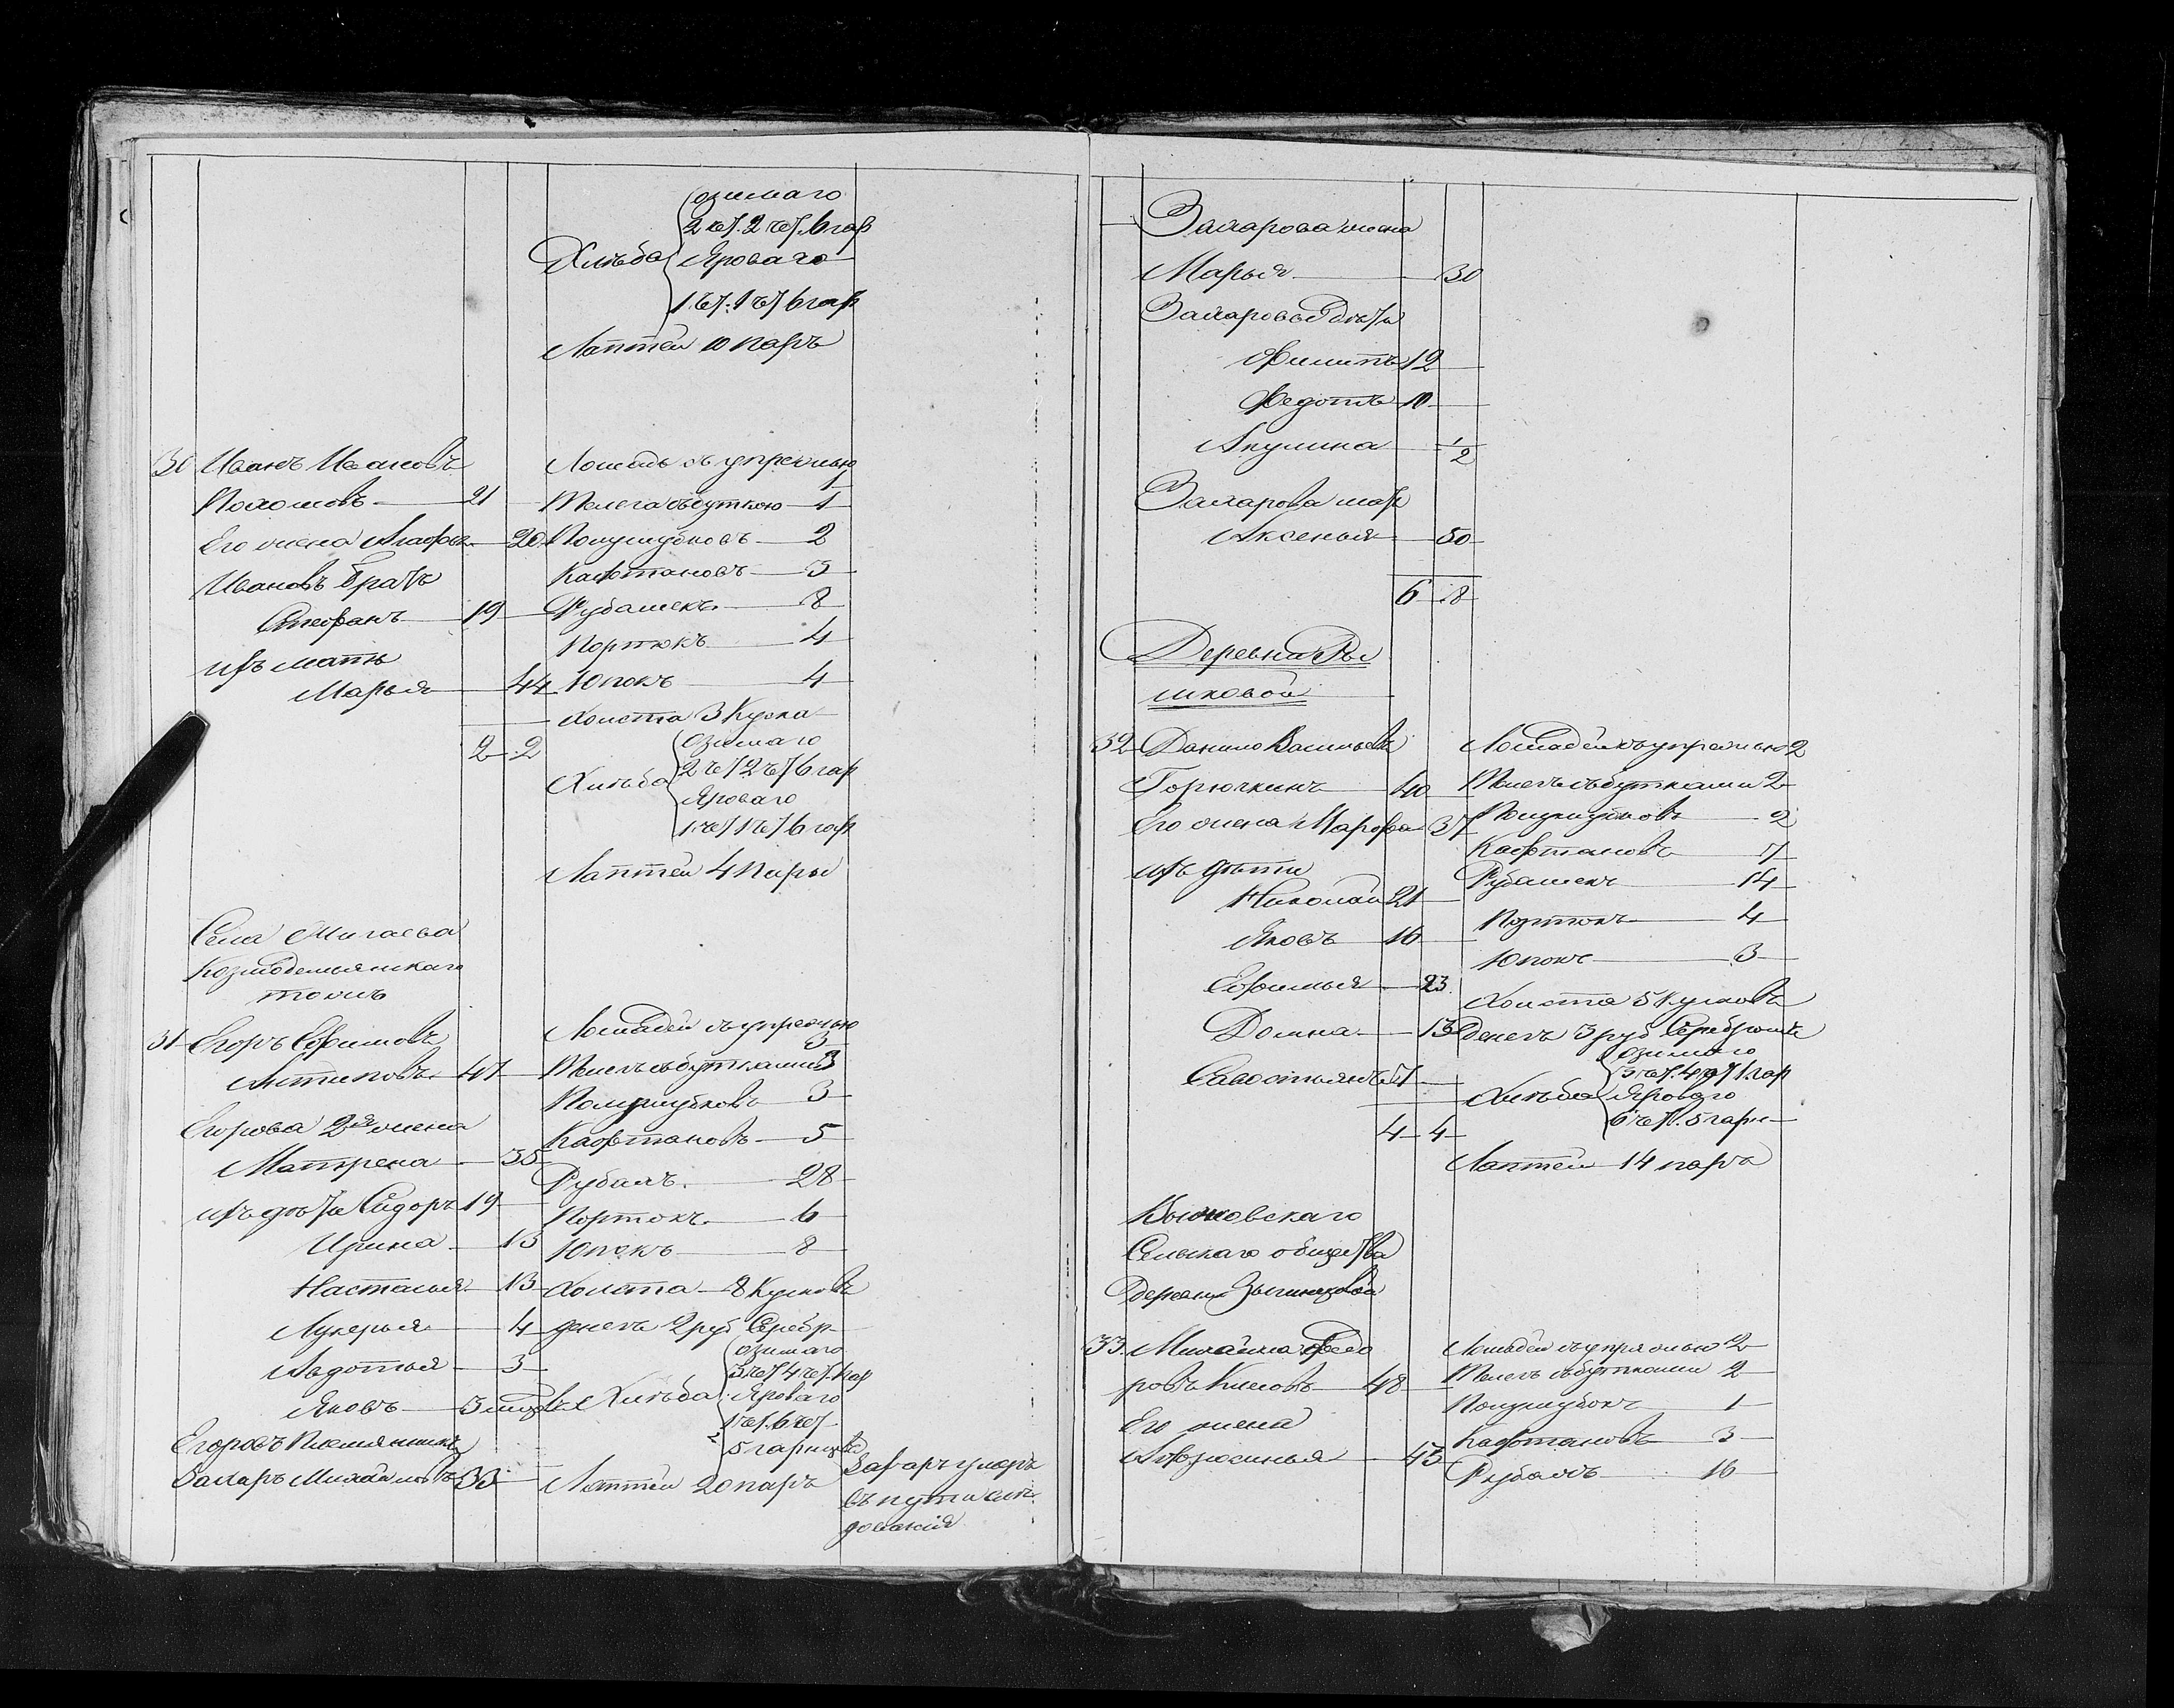 озимаго
2 чет. 2 чет. 6 гар
Хлѣба Яроваго
1 чет. 1 чет 6 гар
Лаптей 10 паръ
30 Иванъ Ивановъ
Пахомовъ 21
Его жена Агафья 20
Ивановъ братъ
Стефанъ 19
ихъ мать
Марья 44
2 2
Лошадь съ упряжью 1
Телега съ буткою 1
Полушубковъ 2
Кафтановъ 3
Рубашекъ 8
Портокъ 4
Юпокъ 4
Холста 3 куска
озимаго
2 чет 2 чет 6 гар
Хлѣба Яроваго
1 чет 1 чет 6 гар
Лаптей 4 пары
Села
Козмодемьянскаго
тожъ
31 Егоръ Ефимовъ
Антиповъ 47
Егорова 2я жена
Матрена 35
ихъ дѣти Сидоръ 19
Ирина 13
Настасья 13
Лукерья 4
Авдотья 3
Яковъ 3
Егоровъ племянникъ
Захаръ Михайловъ 33
Лошадей съ упряжью 3
Телегъ съ бутками 3
Полушубковъ 3
Кафтановъ 5
Рубахъ 28
Портокъ 6
Юпокъ 8
Холста 8 кусковъ
денегъ 2 руб Серебр
озимаго
3 чет 4 чет. 1 гар
Хлѣба Яроваго
1 чет. 6 чет
5 гарнцовъ
Лаптей 20 паръ
Захаръ умеръ
въ пути слѣ
дованія
Захарова жена
Марья 30
Захаровы дѣти
Филипъ 12
Федотъ 10
Акулина 1/2
Захарова мать
Аксенья 50
6 8
Деревни Ры
шковой
32 Данило Васильевъ
Горючкинъ 40
Его жена Марфа 37
ихъ дѣти
Николай 21
Яковъ 16
Ефимья 23
Домна 13
Савостьянъ 7
4 4
Лошадей съ упряжью 2
Телегъ съ бутками 2
Полушубковъ 2
Кафтановъ 7
Рубашекъ 14
Портокъ 4
Юпокъ 3
Холста 5 кусковъ
Денегъ 3 руб Серебромъ
озимаго
3 чет. 4 чет 1 гар
Хлѣба Яроваго
6 чет. 5 гарн
Лаптей 14 паръ
Сельскаго общества
деревни
33. Михайла Федо
ровъ 48
Его жена
45
Лошадей съ упряжью 2
Телегъ съ бутками 2
Полушубокъ 1
Кафтановъ 3
Рубахъ 16